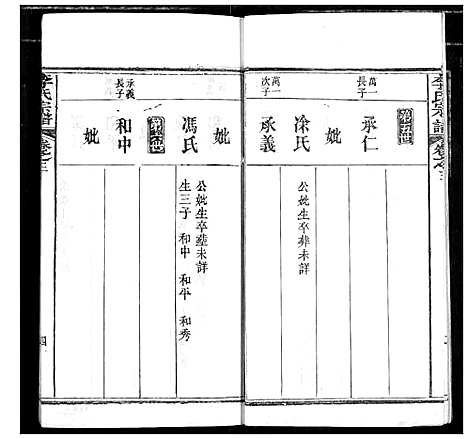 李氏宗譜
卷之三
第五世
萬一長子
承仁
妣
凃氏
公妣生卒葬未詳
萬一次子
承義
妣
馮氏
公妣生卒葬未詳
生三子 和中 和平 和秀
第六世
承義長子
和中
妣
李氏宗譜
卷之三
四